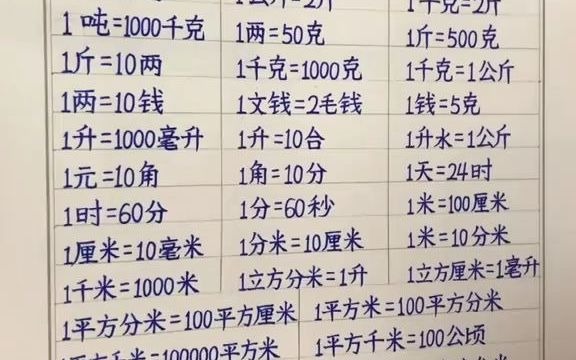 1公斤=2斤 1千克=2斤
1吨=1000千克 1两=50克 1斤=500克
1斤=10两 1千克=1000克 1千克=1公斤
1两=10钱 1文钱=2毛钱 1钱=5克
1升=1000毫升 1升=10合 1升水=1公斤
1元=10角 1角=10分 1天=24时
1时=60分 1分=60秒 1米=100厘米
1厘米=10毫米 1分米=10厘米 1米=10分米
1千米=1000米 1立方分米=1升 1立方厘米=1毫升
1平方分米=100平方厘米 1平方米=100平方分米
1平方千米=100000平方米 1平方千米=100公顷